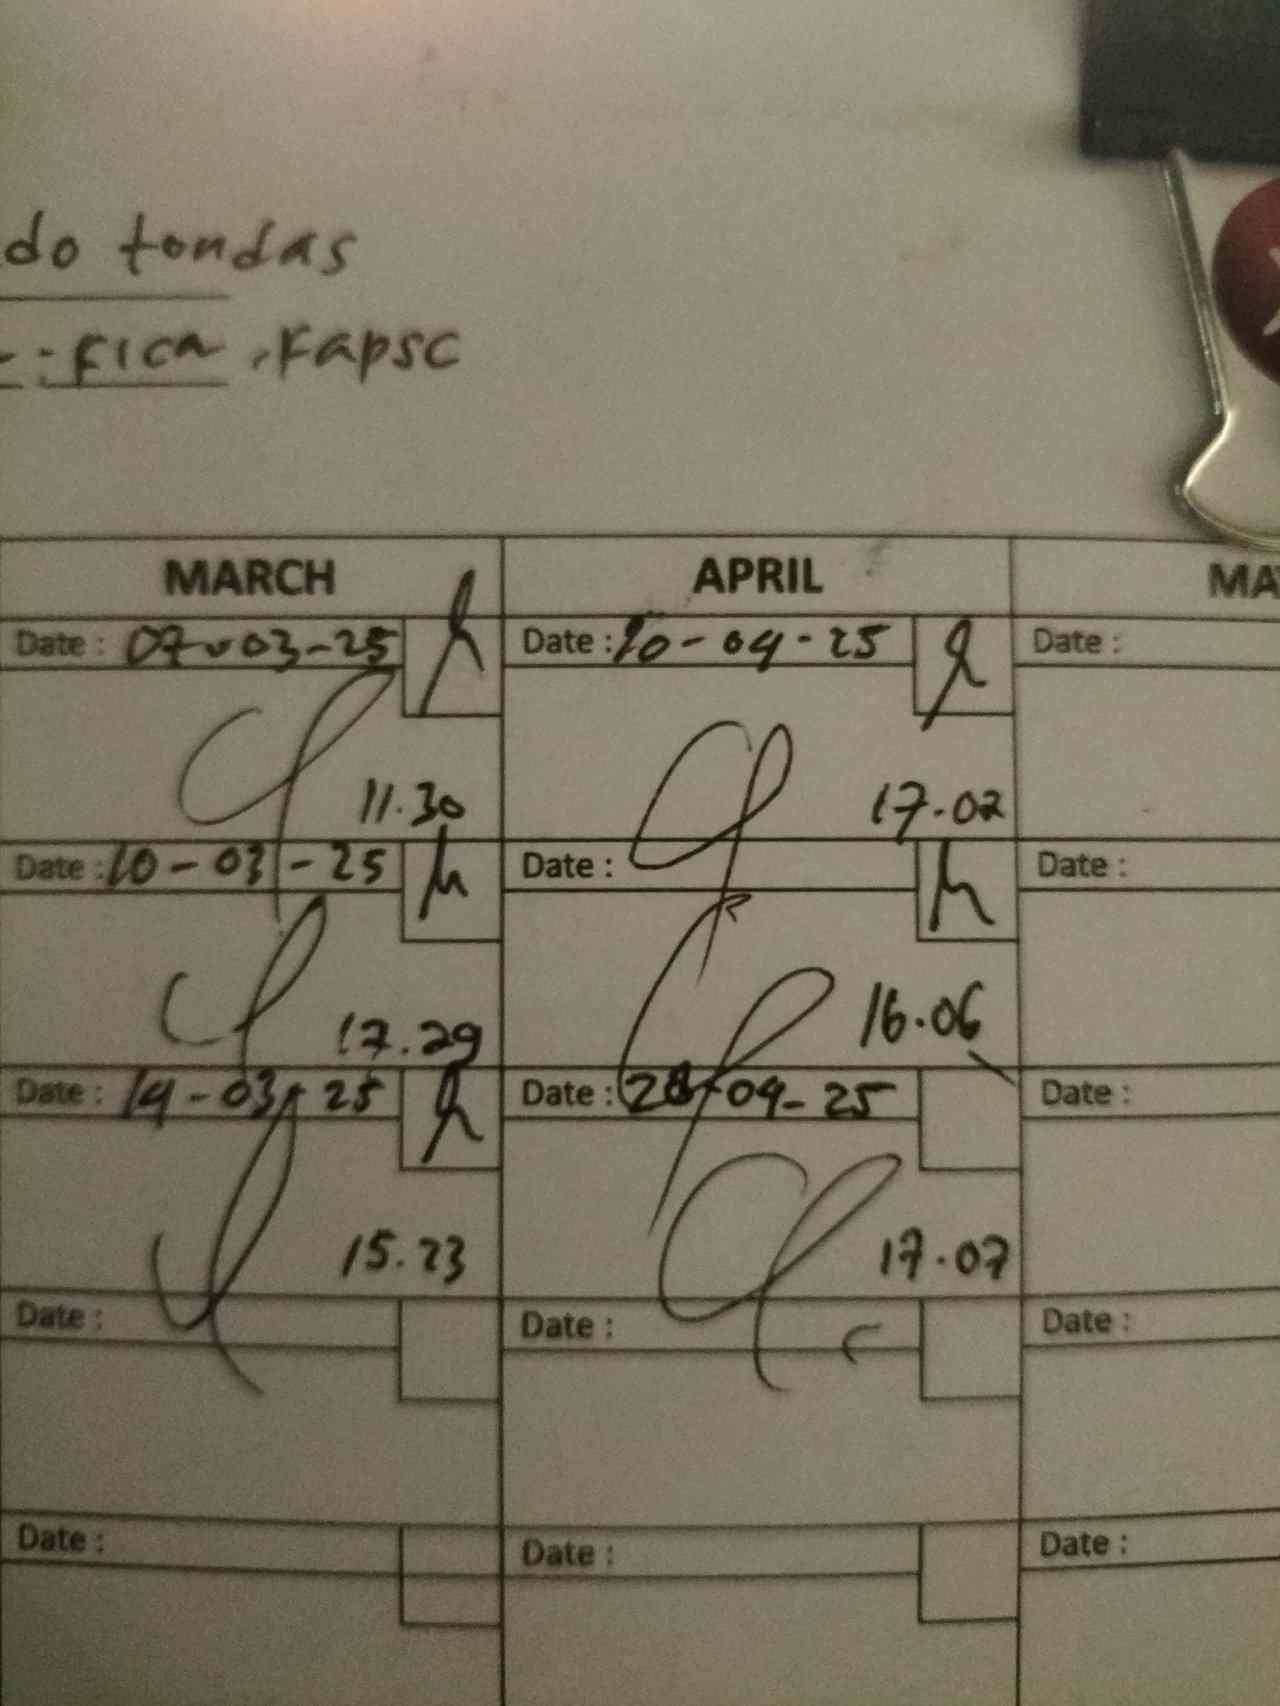 do tondas
fica, Fapsc
MARCH APRIL
Date : 07-03-25 Date : 10-04-25 Date :
11.30 17.02
Date : 10-03-25 Date : Date :
17.29 16.06
Date : 14-03-25 Date : 28-04-25 Date :
15.23 17.07
Date : Date : Date :
Date : Date : Date :